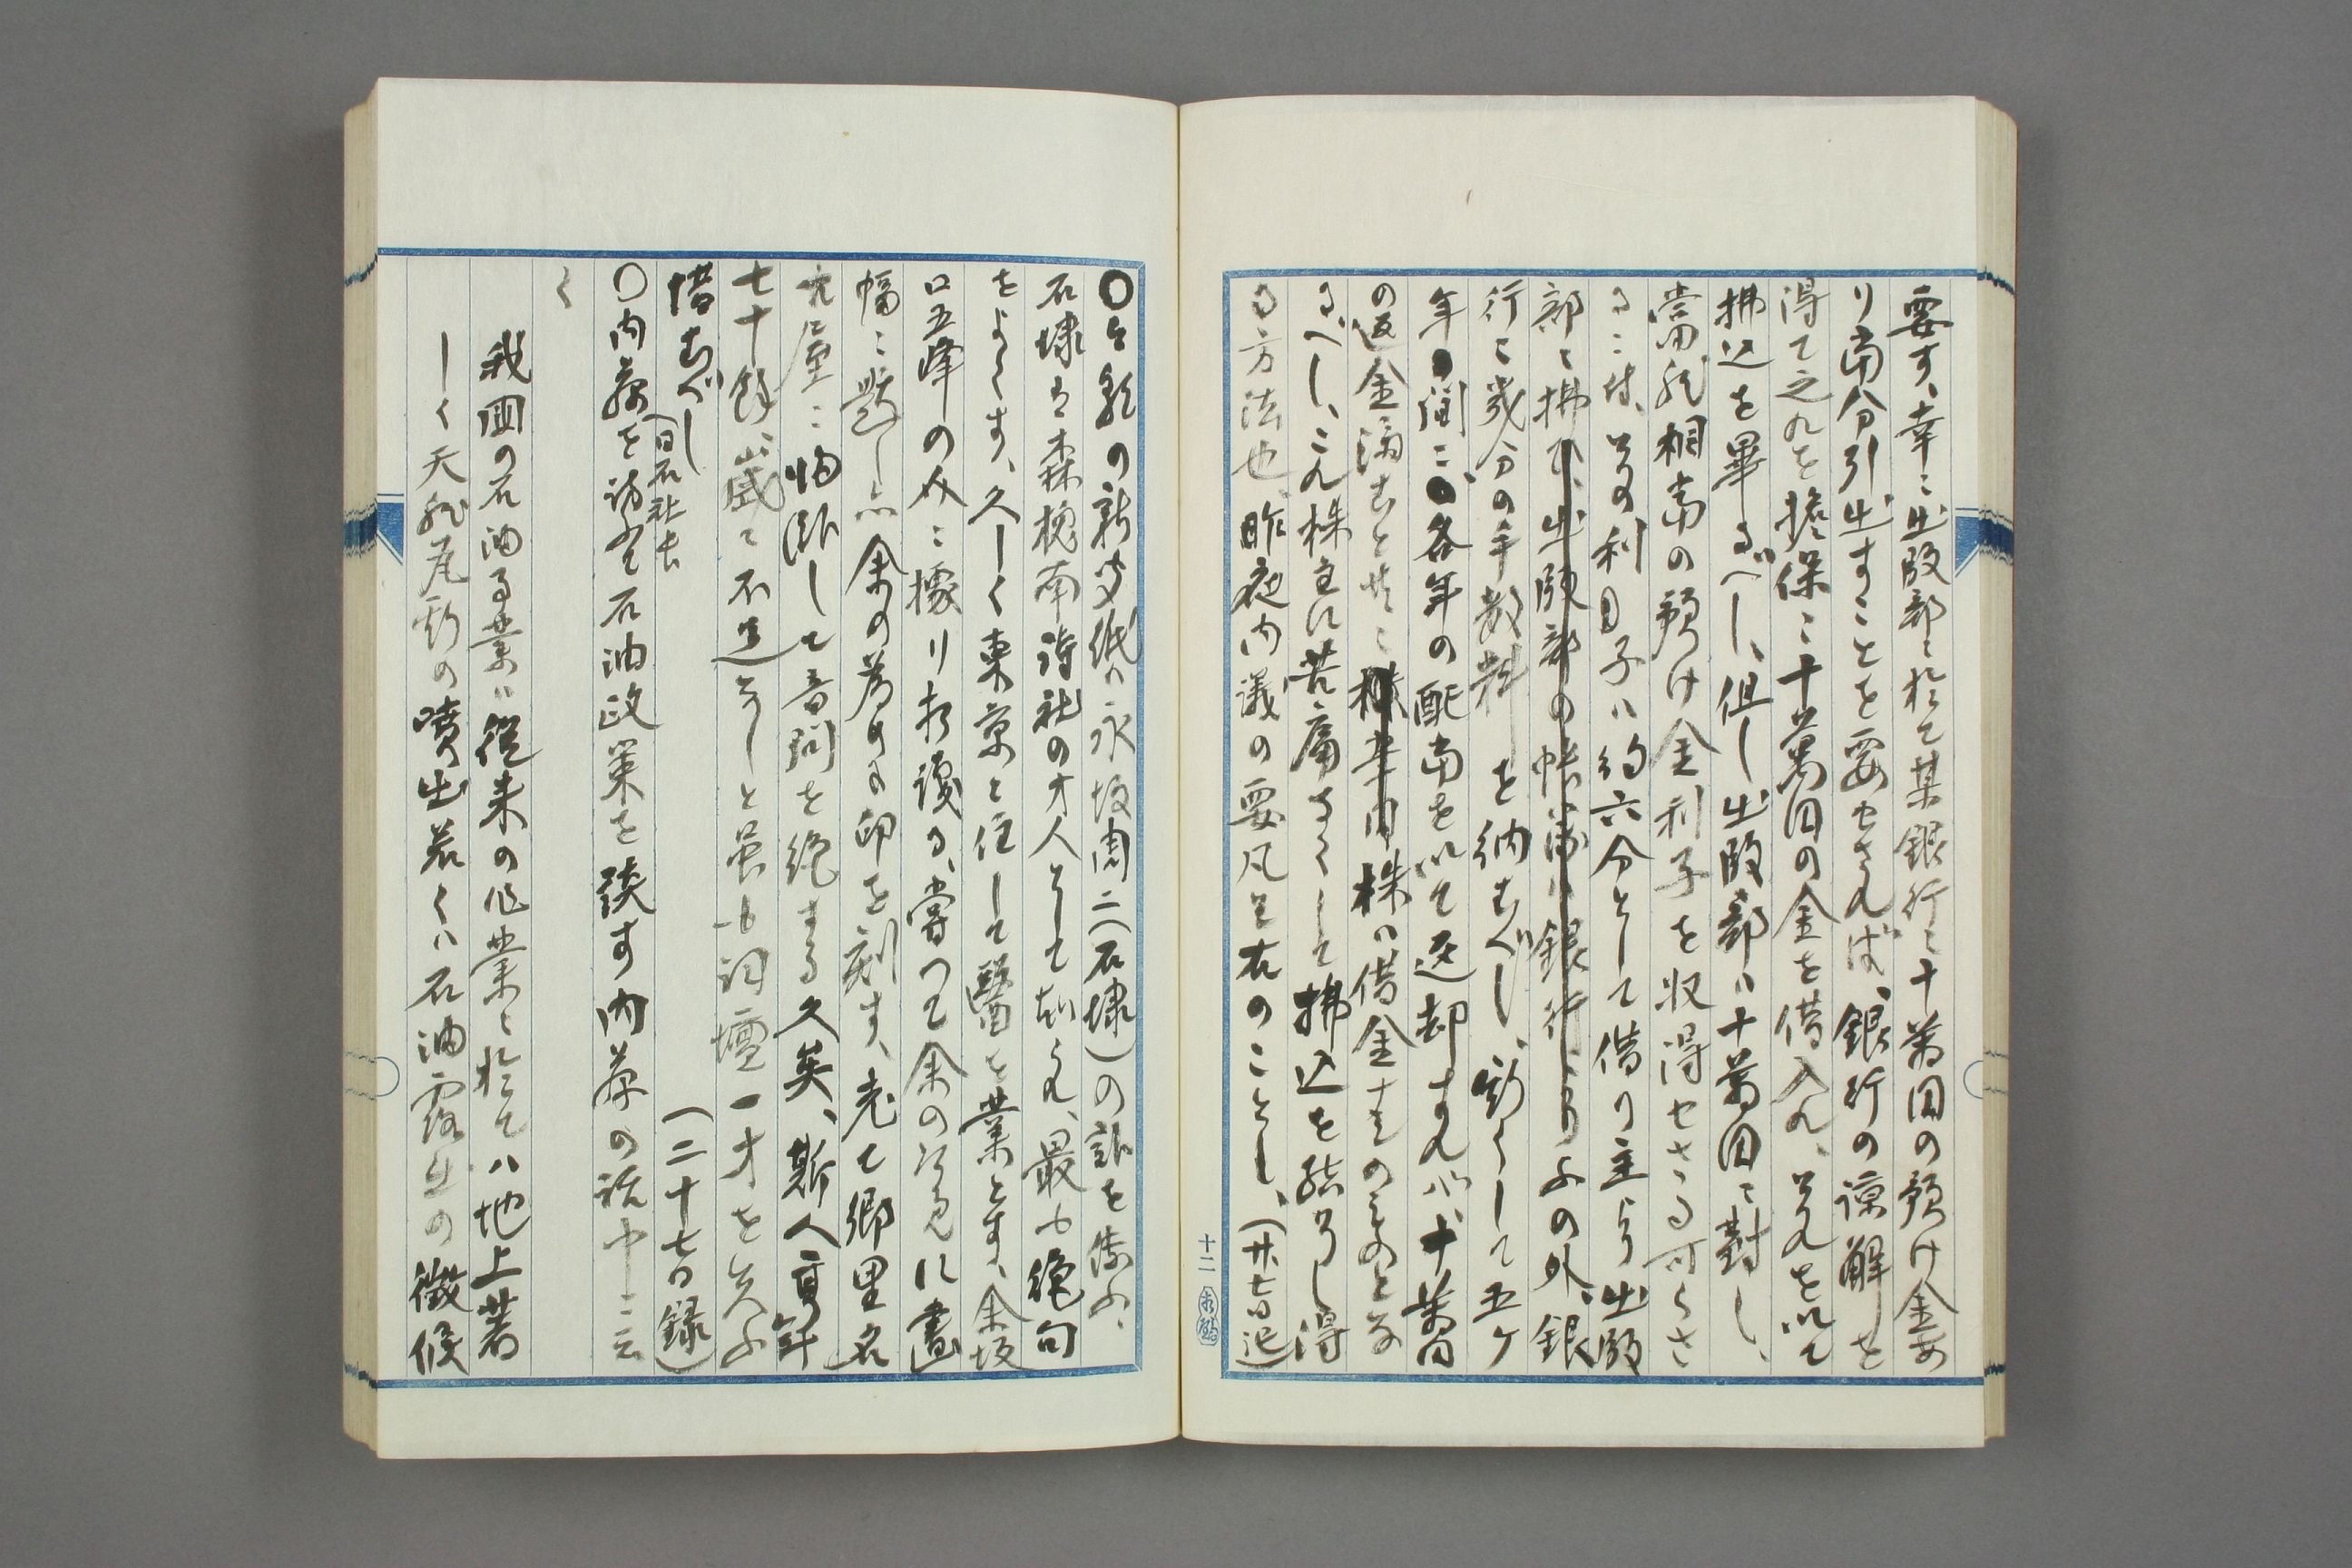 要す、幸に出版部に於て某銀行に十萬円の預け金あ
り南分引出すことを要せざれば、銀行の諒解を
得て之れを擔保に十萬円の金を借入れ、それを以て
拂込を畢るべし、但し出版部は十萬円に對し、
当然相当の預け金利子を収得せざる可らさ
るに付、その利子は約六分として借り主より出版
部に拂ひ、出版部の帳簿は銀行よりの外、銀
行に幾分の手数料を納むべし、斯くして五ケ
年間に各年の配当を以て返却すれば、十萬円
の返金済むと共に株は借金なきのものとな
るべし、これ株主に苦痛なくして拂込を結了し得
る方法也、昨夜内議の要凡そ右のことし、(廿七日記)
十二
〇今朝の新聞紙は永坂周二(石埭)の訃を傳ふ、
石埭は森槐南詩社の才人として知らる、最も絶句
をよくす、久しく東京に住して醫を業とす、余坂
口五峰の介に據り相識る、嘗つて余の
に書
幅に題し亦余の為めに印を刻す、老て郷里名
古屋に帰臥して音問を絶する久矣、斯人享年
七十餘歳に不過らしと雖も詞壇一才を失ふ
惜むべし (二十七日録)
〇内藤を訪ふて石油政策を談す内藤の説中に云
く
我国の石油の業は従来の作業に於ては地上著
しく天然瓦斯の噴出若くは石油露出の徴候